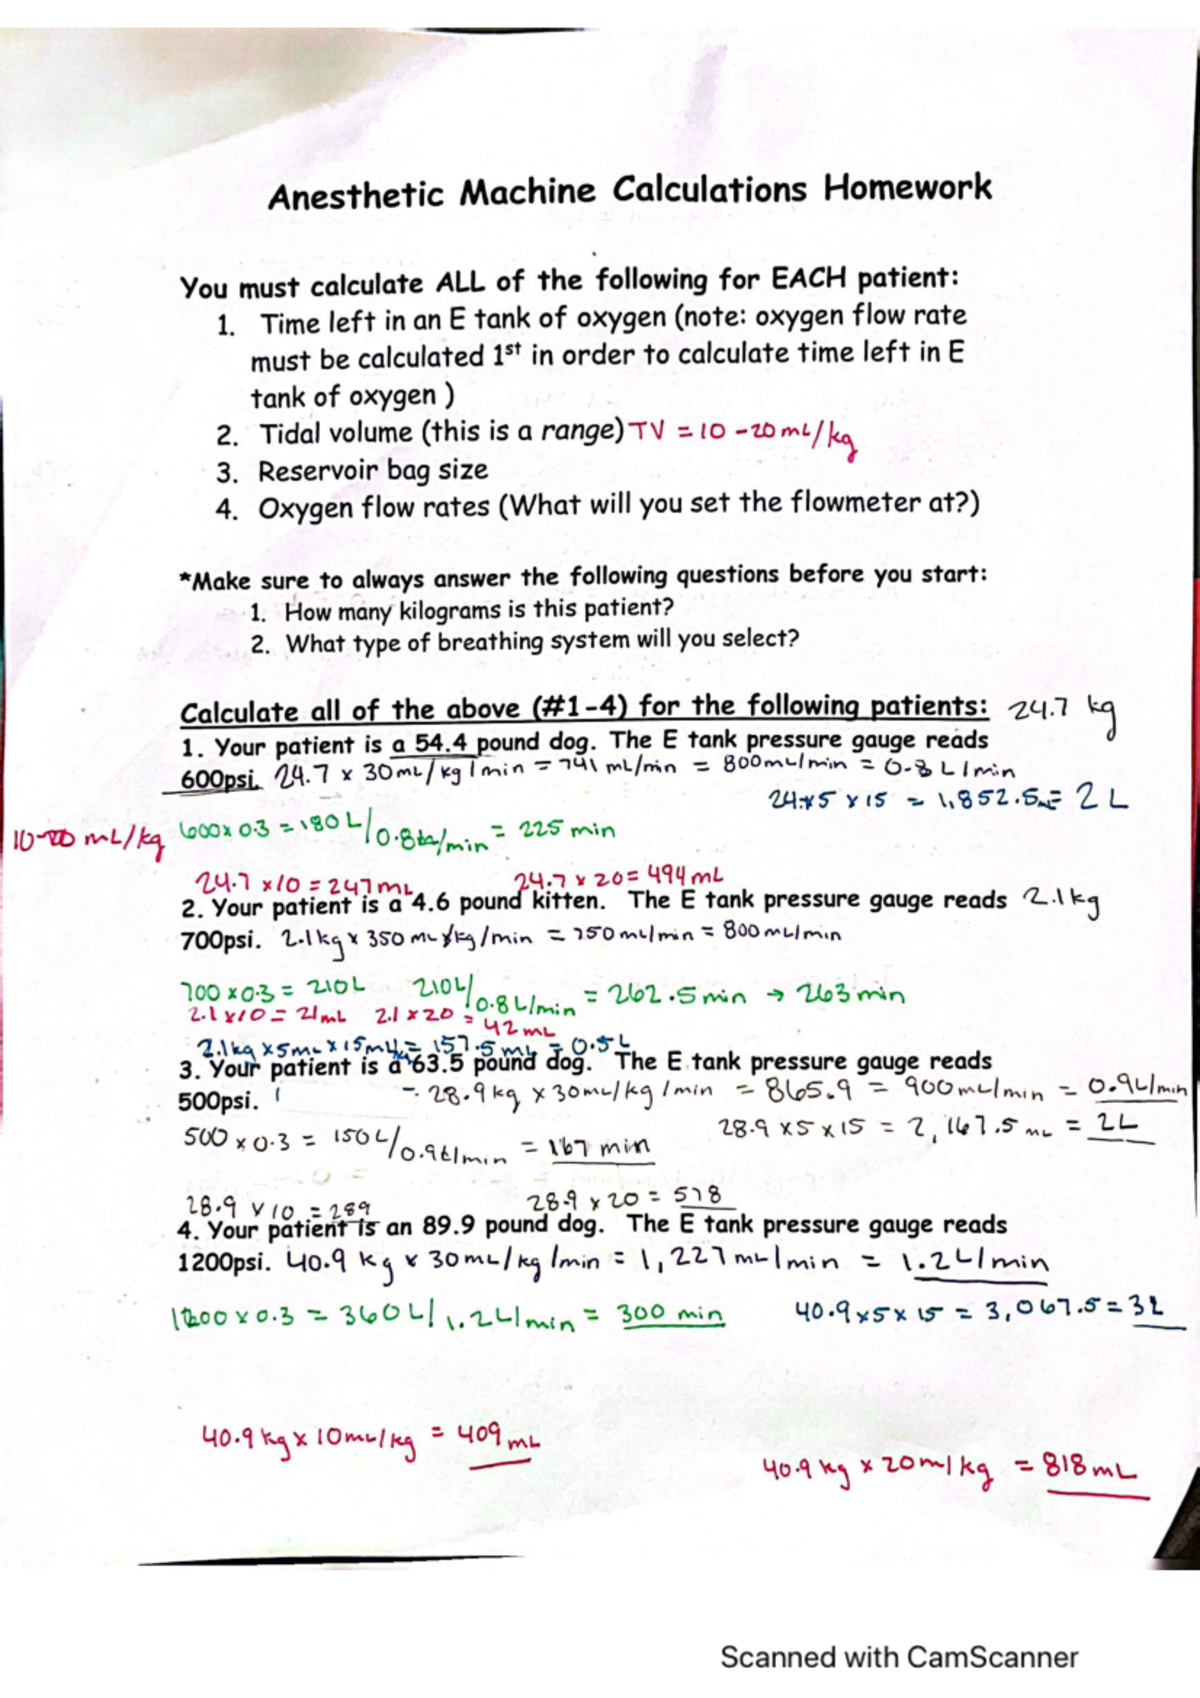 Anesthetic Machine Calculations Homework
You must calculate ALL of the following for EACH patient:
1. Time left in an E tank of oxygen (note: oxygen flow rate
must be calculated 1st in order to calculate time left in E
tank of oxygen )
2. Tidal volume (this is a range) TV = 10-20 mL/kg
3. Reservoir bag size
4. Oxygen flow rates (What will you set the flowmeter at?)
*Make sure to always answer the following questions before you start:
1. How many kilograms is this patient?
2. What type of breathing system will you select?
Calculate all of the above (#1-4) for the following patients: 24.7 kg
1. Your patient is a 54.4 pound dog. The E tank pressure gauge reads
600psi. 24.7 x 30mL/kg/min = 741 mL/min = 800mL/min = 0.8 L/min
24.7x5 x 15 = 1,852.5 mL = 2 L
10-20 mL/kg 600x 0.3 = 180 L/0.8 L/min = 225 min
24.7 x10 = 247mL 24.7 x 20 = 494 mL
2. Your patient is a 4.6 pound kitten. The E tank pressure gauge reads 2.1kg
700psi. 2.1kg x 350 mL/kg/min = 750mL/min = 800mL/min
700 x0.3 = 210L 210L/0.8L/min = 262.5min → 263min
2.1 x10 = 21mL 2.1 x 20 = 42 mL
2.1kg x5mL x15 = 157.5 mL = 0.5L
3. Your patient is a 63.5 pound dog. The E tank pressure gauge reads
500psi. = 28.9kg x 30mL/kg/min = 865.9 = 900mL/min = 0.9L/min
28.9 x5 x 15 = 2,167.5 mL = 2L
500 x 0.3 = 150L/0.9L/min = 167 min
28.9 x 10 = 289 28.9 x 20 = 578
4. Your patient is an 89.9 pound dog. The E tank pressure gauge reads
1200psi. 40.9 kg x 30mL/kg/min = 1,227mL/min = 1.2L/min
1200 x 0.3 = 360L/1.2L/min = 300 min 40.9x5x 15 = 3,067.5 = 3L
40.9kg x 10mL/kg = 409 mL
40.9 kg x 20ml kg = 818 mL
Scanned with CamScanner